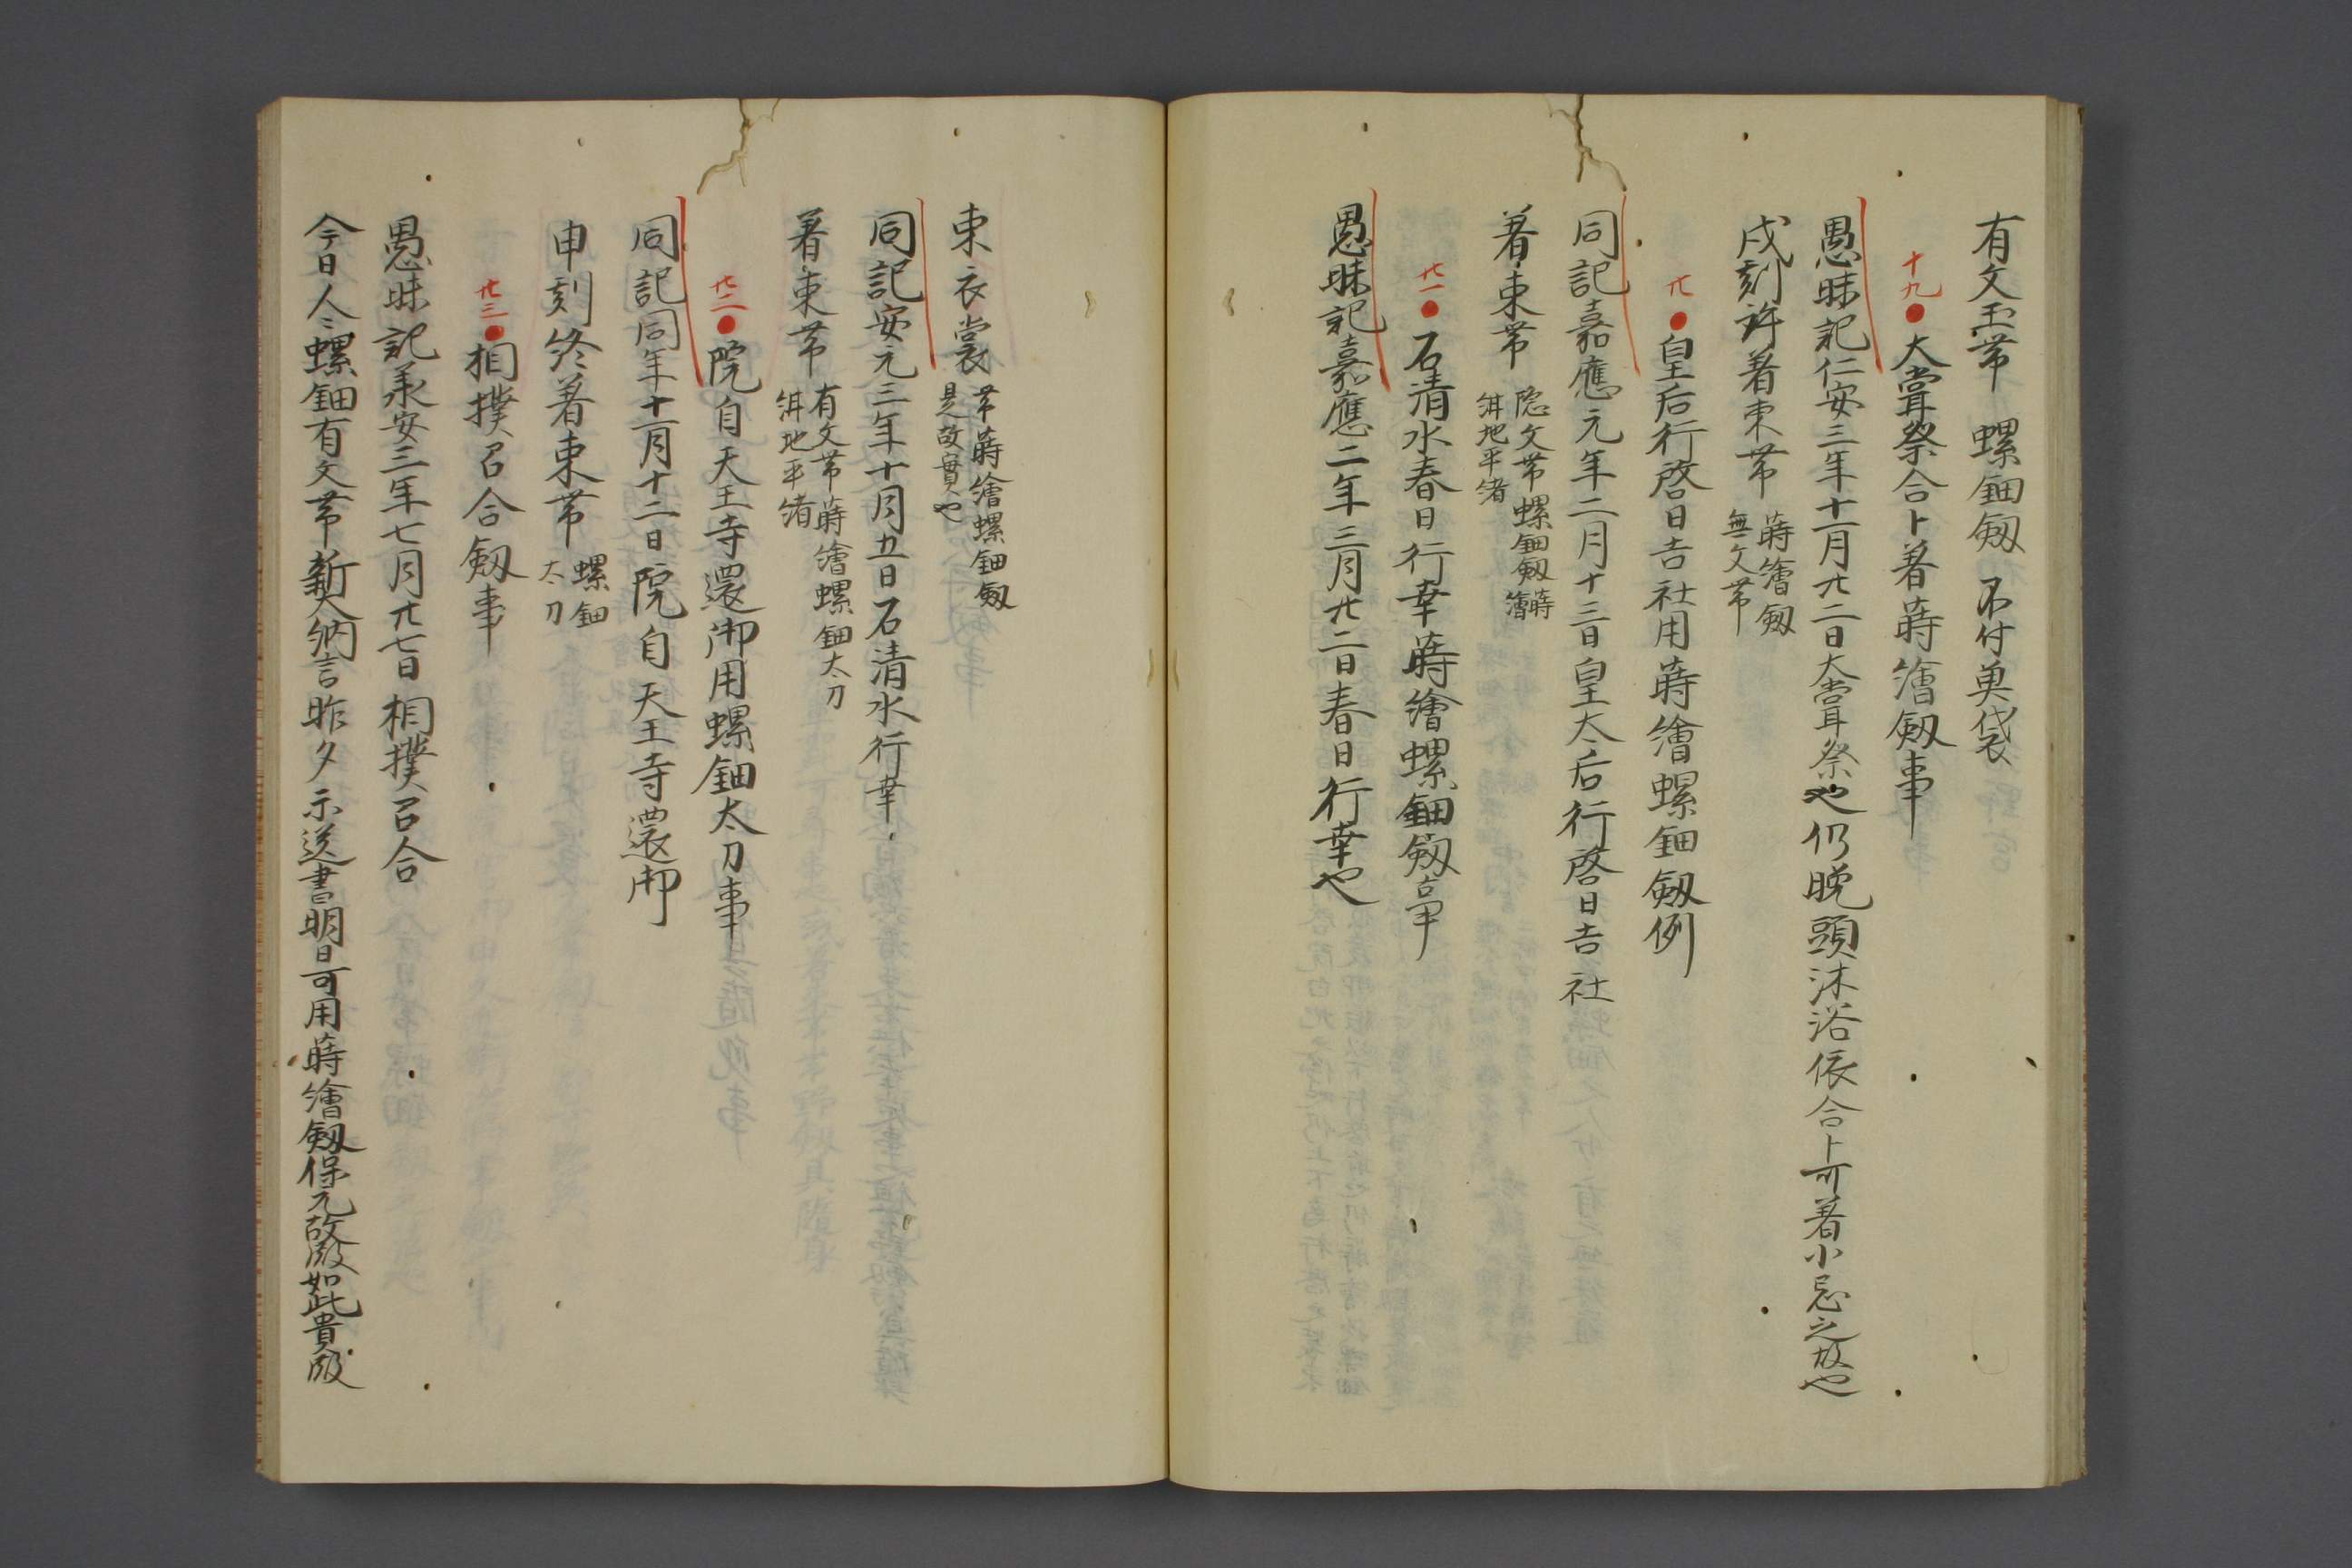 有文玉帯 螺鈿釼 不付魚袋
十九●大甞祭合卜著蒔繪釼事
愚昧記仁安三年十一月廿二日大甞祭也仍晩頭沐浴依合卜可著小忌之故也
戌刻許著束帯 蒔繪釼
無文帯
廿●皇后行啓日吉社用蒔繪螺鈿釼例
同記嘉應元年二月十三日皇太后行啓日吉社
著束帯 隠文帯螺鈿釼蒔繪
紺地平緒
廿一●石清水春日行幸蒔繪螺鈿釼事
愚昧記嘉應二年三月廿二日春日行幸也
束衣裳 帯蒔繪螺鈿釼
是故實也
同記安元三年十月五日石清水行幸
著束帯 有文帯蒔繪螺鈿太刀
紺地平緒
廿二●院自天王寺還御用螺鈿太刀事
同記同年十一月十二日院自天王寺還御
申刻終著束帯 螺鈿
太刀
廿三●相撲召合釼事
愚昧記承安三年七月廿七日相撲召合
今日人〻螺鈿有文帯新大納言昨夕示送書明日可用蒔繪釼保元故殿如此貴殿